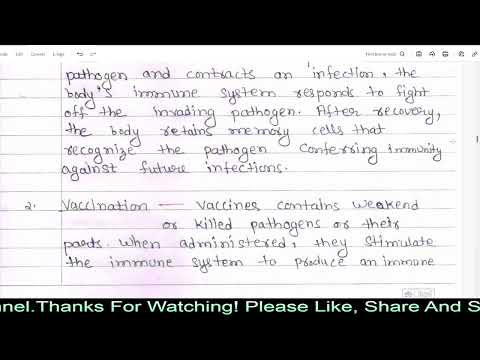 pathogen and contracts an infection, the
body's immune system responds to fight
off the invading pathogen. After recovery,
the body retains memory cells that
recognize the pathogen conferring immunity
against future infections.
2. Vaccination — Vaccines contains weakend
or killed pathogens or their
parts. When administered, they stimulate
the immune system to produce an immune
nnel.Thanks For Watching! Please Like, Share And S